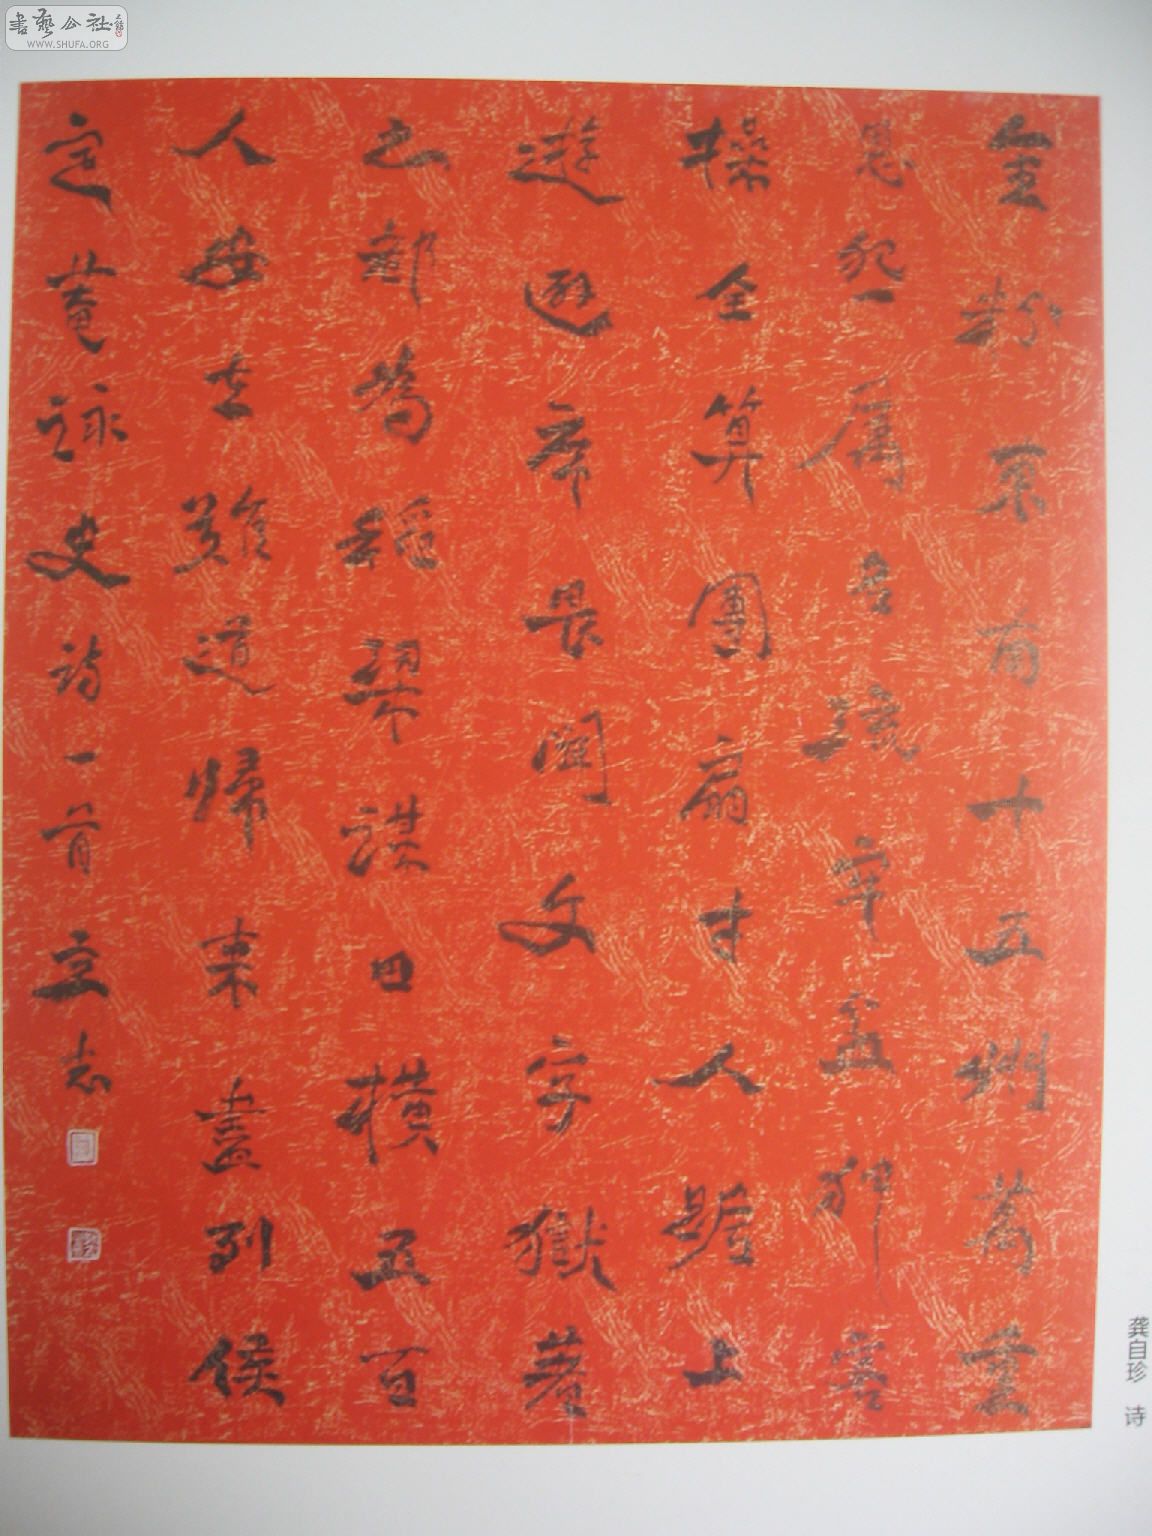 書藝公社
WWW.SHUFA.ORG
金粉東南十五州萬重
恩怨屬名流牢盆狎客
操全算團扇才人踞上
遊避席畏聞文字獄著
書都為稻粱謀田橫五百
人安在難道歸來盡列侯
定菴詠史詩一首立志
龚自珍 诗